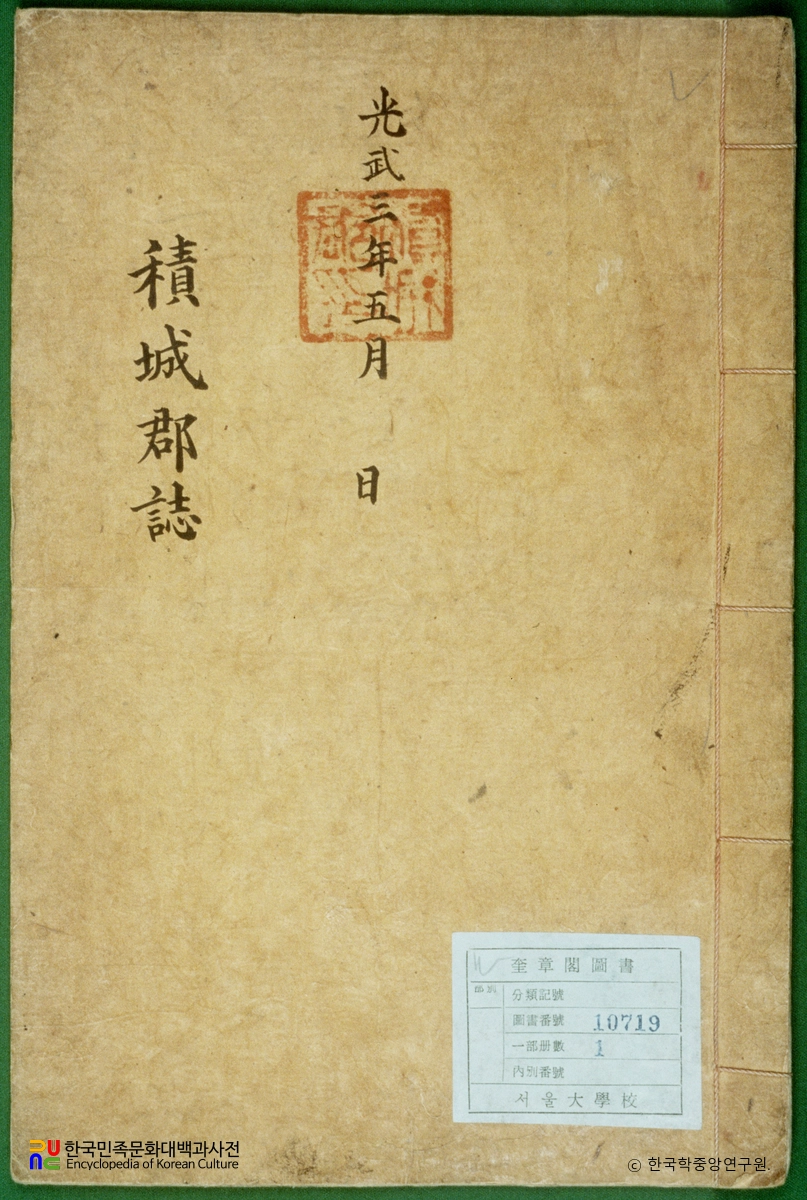 光武三年五月 日
積城郡誌
奎章閣圖書
部別
分類記號
圖書番號 10719
一部册數 1
內別番號
서울大學校
한국민족문화대백과사전
Encyclopedia of Korean Culture
© 한국학중앙연구원